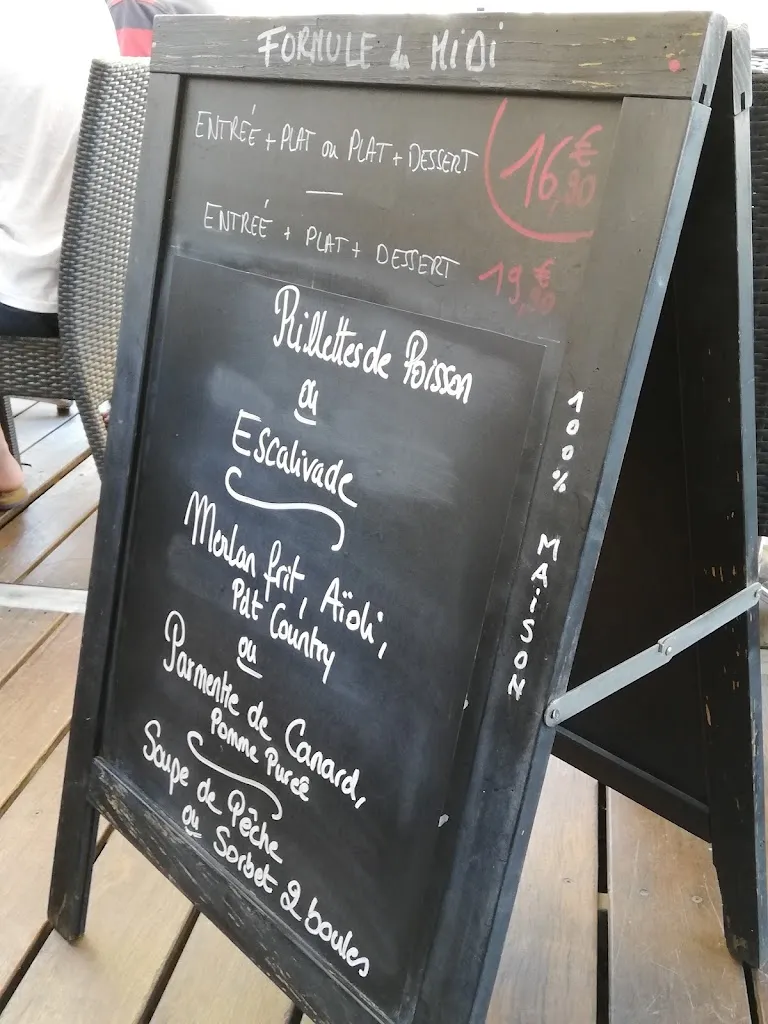 FORMULE du MiDi
ENTREÉ + PLAT ou PLAT + DESSERT 16€,90
ENTREÉ + PLAT + DESSERT 19€,90
Rillettes de Poisson
ou
Escalivade
Merlan frit, Aïoli,
Pdt Country
ou
Parmentie de Canard,
Pomme Pureé
Soupe de Pêche
ou Sorbet 2 boules
100% MAiSON